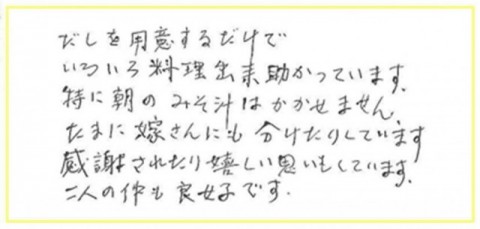 だしを用意するだけで
いろいろ料理出来助かっています。
特に朝のみそ汁はかかせません。
たまに嫁さんにも分けたりしています
感謝されたり嬉しい思いもしています。
二人の仲も良好です.